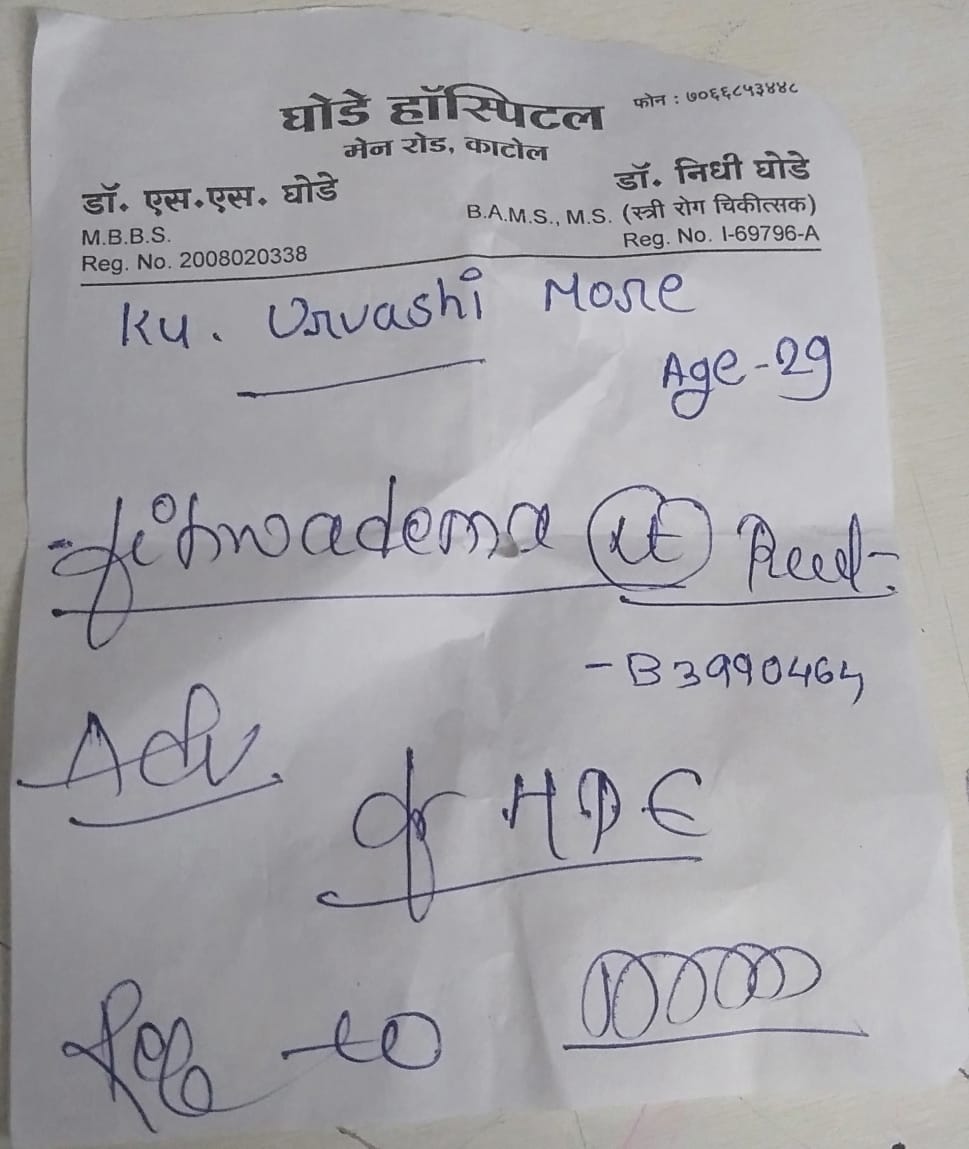 घोडे हॉस्पिटल
फोन : ७०६६८५३४४८
मेन रोड, काटोल
डॉ. एस.एस. घोडे
M.B.B.S.
Reg. No. 2008020338
डॉ. निधी घोडे
B.A.M.S., M.S. (स्त्री रोग चिकीत्सक)
Reg. No. I-69796-A
Ku. Urvashi More
Age - 29
- B3990464
Adv.
HPE
to